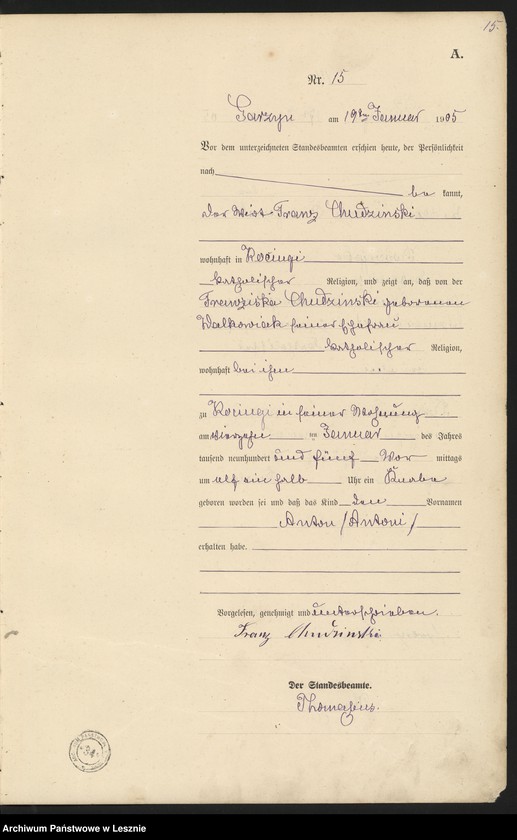 15.
A.
Nr. 15
Garzyn am 19ten Januar 1905
Vor dem unterzeichneten Standesbeamten erschien heute, der Persönlichkeit
nach be kannt,
der Wirt Franz Chudzinski
wohnhaft in Kociugi
katholischer Religion, und zeigt an, daß von der
Franziska Chudzinski geborenen
Walkowiak seiner Ehefrau
katholischer Religion,
wohnhaft bei ihm
zu Kociugi in seiner Wohnung
am vierzehn im Januar des Jahres
tausend neunhundert und fünf Vor mittags
um elf ein halb Uhr ein Knabe
geboren worden sei und daß das Kind den Vornamen
Anton /Antoni/
erhalten habe.
Vorgelesen, genehmigt und unterschrieben.
Franz Chudzinski
Der Standesbeamte.
Archiwum Państwowe w Lesznie